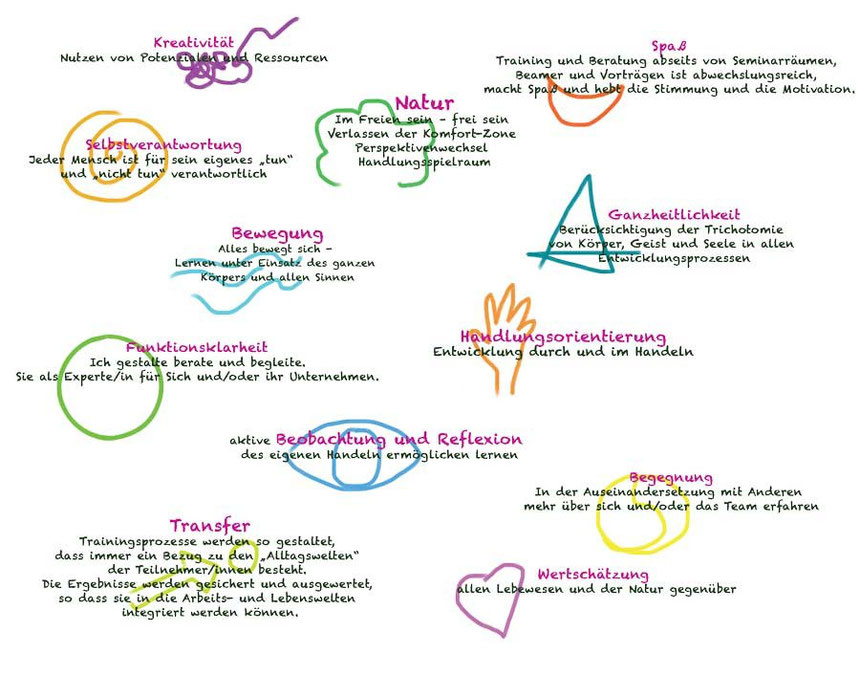 Kreativität
Nutzen von Potenzialen und Ressourcen
Spaß
Training und Beratung abseits von Seminarräumen,
Beamer und Vorträgen ist abwechslungsreich,
macht Spaß und hebt die Stimmung und die Motivation.
Natur
Im Freien sein – frei sein
Verlassen der Komfort-Zone
Perspektivenwechsel
Handlungsspielraum
Selbstverantwortung
Jeder Mensch ist für sein eigenes „tun“
und „nicht tun“ verantwortlich
Ganzheitlichkeit
Berücksichtigung der Trichotomie
von Körper, Geist und Seele in allen
Entwicklungsprozessen
Bewegung
Alles bewegt sich –
Lernen unter Einsatz des ganzen
Körpers und allen Sinnen
Handlungsorientierung
Entwicklung durch und im Handeln
Funktionsklarheit
Ich gestalte berate und begleite.
Sie als Experte/in für Sich und/oder ihr Unternehmen.
aktive Beobachtung und Reflexion
des eigenen Handeln ermöglichen lernen
Begegnung
In der Auseinandersetzung mit Anderen
mehr über sich und/oder das Team erfahren
Transfer
Trainingsprozesse werden so gestaltet,
dass immer ein Bezug zu den „Alltagswelten“
der Teilnehmer/innen besteht.
Die Ergebnisse werden gesichert und ausgewertet,
so dass sie in die Arbeits- und Lebenswelten
integriert werden können.
Wertschätzung
allen Lebewesen und der Natur gegenüber